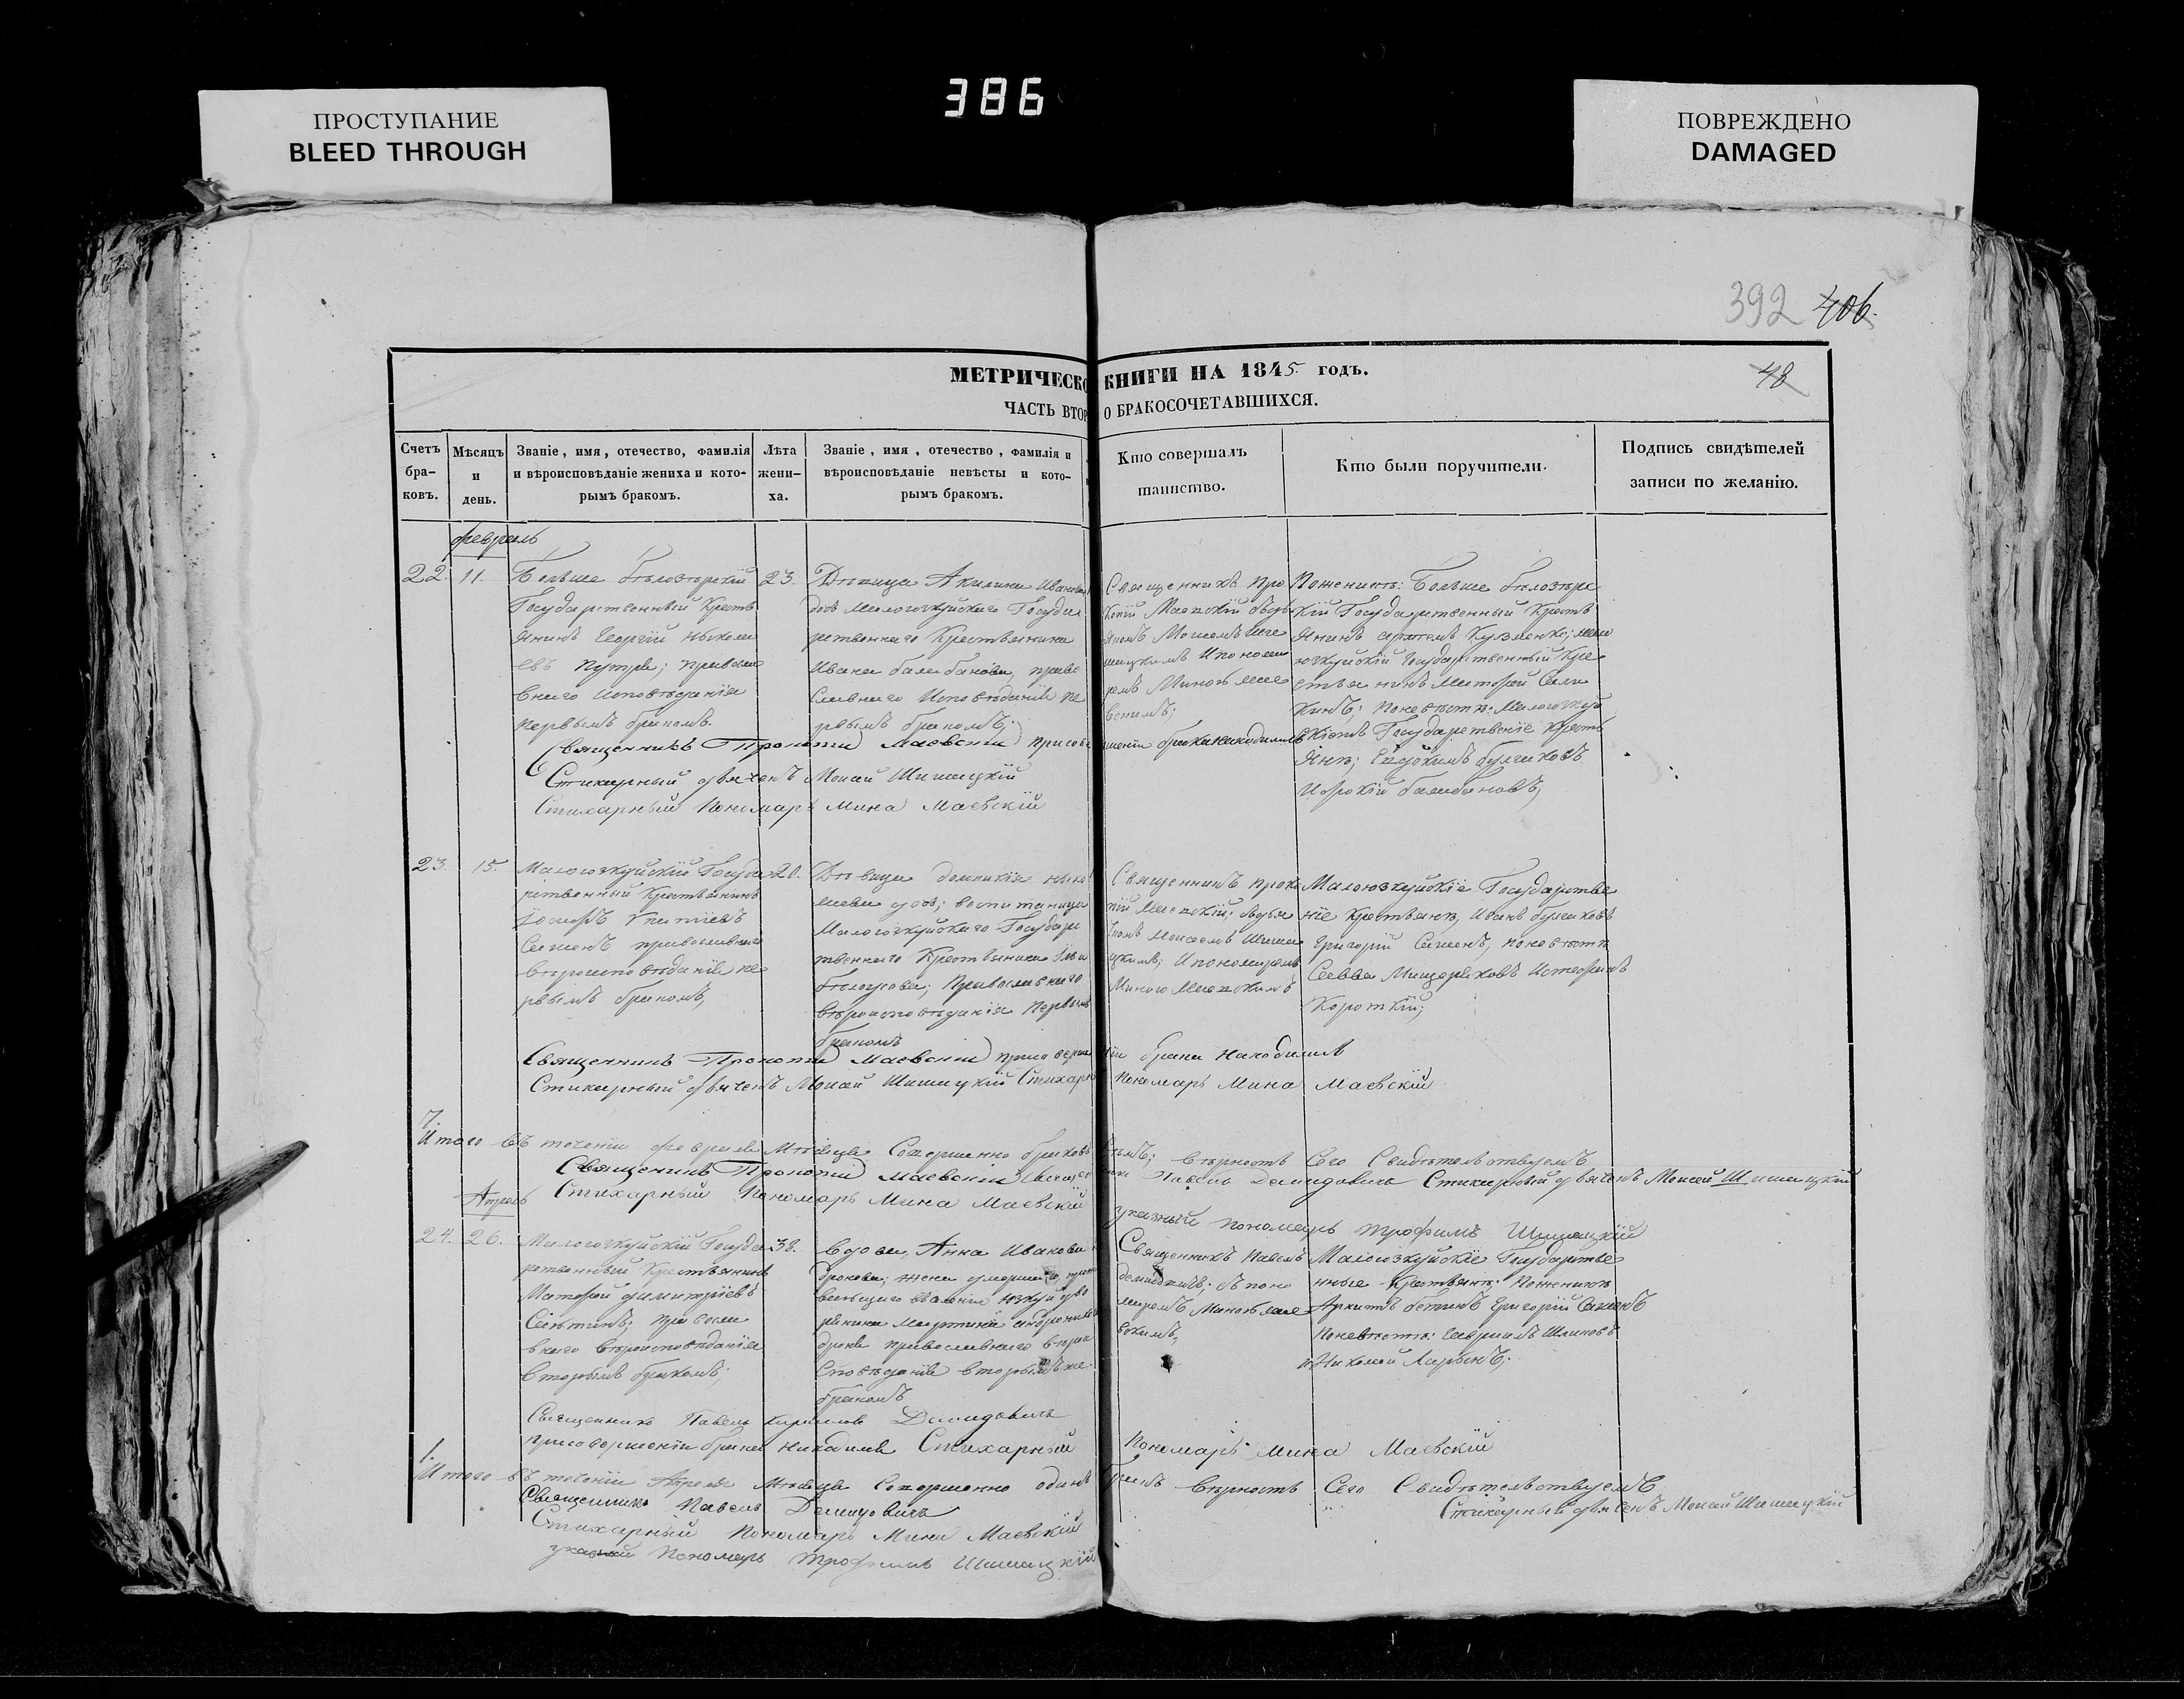 386
ПРОСТУПАНИЕ
BLEED THROUGH
ПОВРЕЖДЕНО
DAMAGED
392 406.
МЕТРИЧЕСКО КНИГИ НА 1845 годъ.
48
ЧАСТЬ ВТОР О БРАКОСОЧЕТАВШИХСЯ.
Счетъ бра-ковъ.
Мѣсяцъ и день.
Званіе, имя, отечество, фамилія
и вѣроисповѣданіе жениха и кото-
рымъ бракомъ.
Лѣта жени-ха.
Званіе, имя, отечество, фамилія и
вѣроисповѣданіе невѣсты и кото-
рымъ бракомъ.
Кто совершалъ
таинство.
Кто были поручители.
Подпись свидѣтелей
записи по желанію.
февраль
22. 11.
Больше бѣлозерскій
Государственный Кресть
янинъ Георгій Николи
евъ
внаго исповѣданія
первымъ бракомъ.
23.
Дѣвица Акилина Иванова
дочь Малоюзкуйскаго Госуда
рственнаго Крестьянина
Ивана балабанова, право
славнаго Исповѣданія пе
рвымъ бракомъ;
Священникъ Про
копій Маевскій съ дь
ячемъ Моисеемъ Ши
шацкимъ и понома
ремъ Миною Мае
вскимъ;
По женихѣ: Больше бѣлозерс
кій Государственный Кресть
янинъ Артемъ Кузменко; мало
юзкуйскій Государственный Кре
стьянинъ Матвей Сали
кинъ; По невѣстѣ: Малоюзкуй
скіе Государственіе Кресть
янѣ; Евдокимъ булгаковъ
балабановъ,
Священникъ Прокопій Маевскій при совершеніи брака находился
Стихарный дьячекъ Моисей Шишацкій
Стихарный Пономарь Мина Маевскій
23. 15.
Малоюзкуйскій Госуда
рственный Крестьянинъ
Іосифъ
православнаго
вѣроисповѣданія пе
рвымъ бракомъ,
20.
Дѣвица Домникія Нико
лаева дочь; воспитаница
Малоюзкуйскаго Государс
твеннаго Крестьянина
Православнаго
вѣроисповѣданія первымъ
бракомъ
Священникъ Проко
пій Маевскій; съ дья
чкомъ Моисеемъ Шиша
цкимъ; и пономаремъ
Миною Маевскимъ
Малоюзкуйскіе Государстве
ніе Крестьянѣ, Иванъ булгаковъ
Григорій по невѣстѣ
Савва Мищеряковъ и Стефанъ
Короткій;
Священникъ Прокопій Маевскій при совершеніи брака находился
Стихарный дьячекъ Моисей Шишацкій Стихарн Пономарь Мина Маевскій
7.
Итого въ теченіи февраля Мѣсяца Совершенно браковъ семь; вѣрность Сего Свидѣтельствуемъ
Священникъ Прокопій Маевскій Священникъ Павелъ Демидовичъ Стихарный дьячекъ Моисей Шишацкій
Стихарный Пономарь Мина Маевскій
указный пономарь Трофимъ Шишацкій
Апрель
24. 26.
Малоюзкуйскій Госуда
рственный Крестьянинъ
Матвей Димитріевъ
правосла
внаго вѣроисповѣданія
вторымъ бракомъ;
38.
Вдова, Анна Иванова
дронова; жена умершаго
православнаго вѣрои
сповѣданія вторымъ же
бракомъ
Священникъ Павелъ
Демидовичъ; съ поно
маремъ Миною Мае
вскимъ,
Малоюзкуйскіе Государстве
нные Крестьянѣ; По женихѣ
Григорій
По невѣстѣ: Гавріилъ Шлиновъ
и Николай Ларынъ;
Священникъ Павелъ Кириловъ Демидовичъ
при совершеніи брака находился Стихарный Пономарь Мина Маевскій
1.
Итого въ теченіи Апреля Мѣсяца Совершенно одинъ бракъ вѣрность Сего Свидѣтельствуемъ
Священникъ Павелъ Демидовичъ
Стихарный дьячекъ Моисей Шишацкій
Стихарный Пономарь Мина Маевскій
указный Пономарь Трофимъ Шишацкій